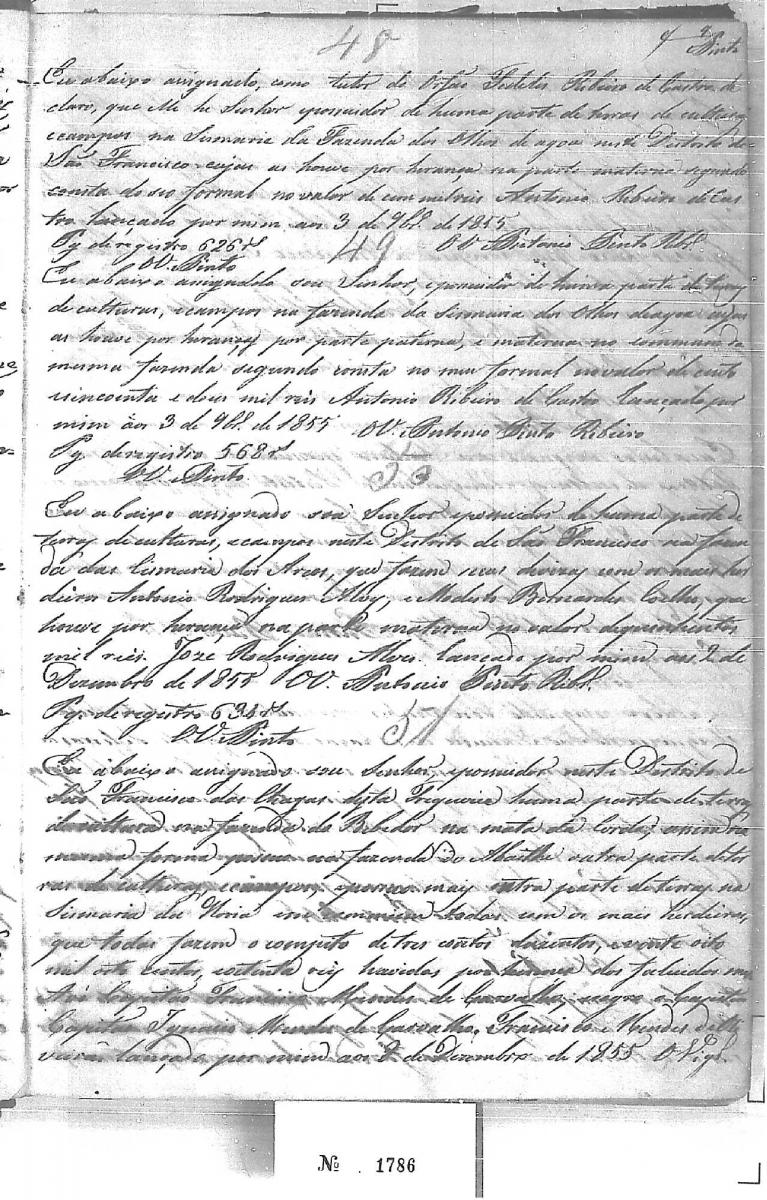 48
Pinto
Eu abaixo assignado, como tutor de Orfão Fidelis Ribeiro de Castro, de
claro, que elle he Senhor e possuidor de huma parte de terras de culturas,
e campos na Sismaria da Fazenda dos Olhos de agoa neste Districto de
São Francisco cujas as houve por herança na parte materna segundo
consta do seo formal no valor de cem mil reis Antonio Ribeiro de Cas
tro lançado por mim aos 3 de 9br.º de 1855
Pg. de registro 626 rs O V. Antonio Pinto Rib.º
49
O V. Pinto
Eu abaixo assignado sou Senhor, e possuidor de huma parte de terras
de culturas, e campos na fazenda da Sismaria dos Olhos deagoa cujas
as houve por herança por parte paterna, e materna no commum da
mesma fazenda segundo consta no meu formal no valor de cento
cincoenta e dous mil reis Antonio Ribeiro de Castro lançado por
mim aos 3 de 9br.º de 1855 O V. Antonio Pinto Ribeiro
Pg. de registro 568 rs
O V. Pinto
Eu abaixo assignado sou Senhor e possuidor de huma parte de
terras de culturas, e campos neste Districto de São Francisco na fazen
da das Cismaria dos Arcos, que fazem suas divizas com os mais her
deiros Antonio Rodrigues Alvz, e Modesto Bernardes Coelho, que
houve por herança na parte materna no valor de quinhentos
mil reis. José Rodrigues Alves. lançado por mim aos 2 de
Dezembro de 1855 O V. Antonio Pinto Rib.º
Pg. de registro 634 rs
51
O V. Pinto
Eu abaixo assignado sou Senhor, e possuidor neste Districto de
São Francisco das Chagas desta Freguezia huma parte de terras
de cultura na fazenda do Bebedor na mata da Corda, assim da
mesma forma na fazenda do outra parte de ter
ras de culturas, e campos, e posuo mais outra parte de terras na
Sismaria da em commum todas com os mais herdeiros,
que todas fazem o computo de tres contos duzentos, e vinte oito
mil oito centos, e setenta reis havidas por herança dos falecidos meu
Avô Capitão Francisco Mendes de Carvalho, e sogro o Capitão
Capitão Ignacio Mendes de Carvalho. Francisco Mendes de Oli
veira. lançado por mim aos 2 de Dezembro de 1855 O Vig.º
Nº 1786